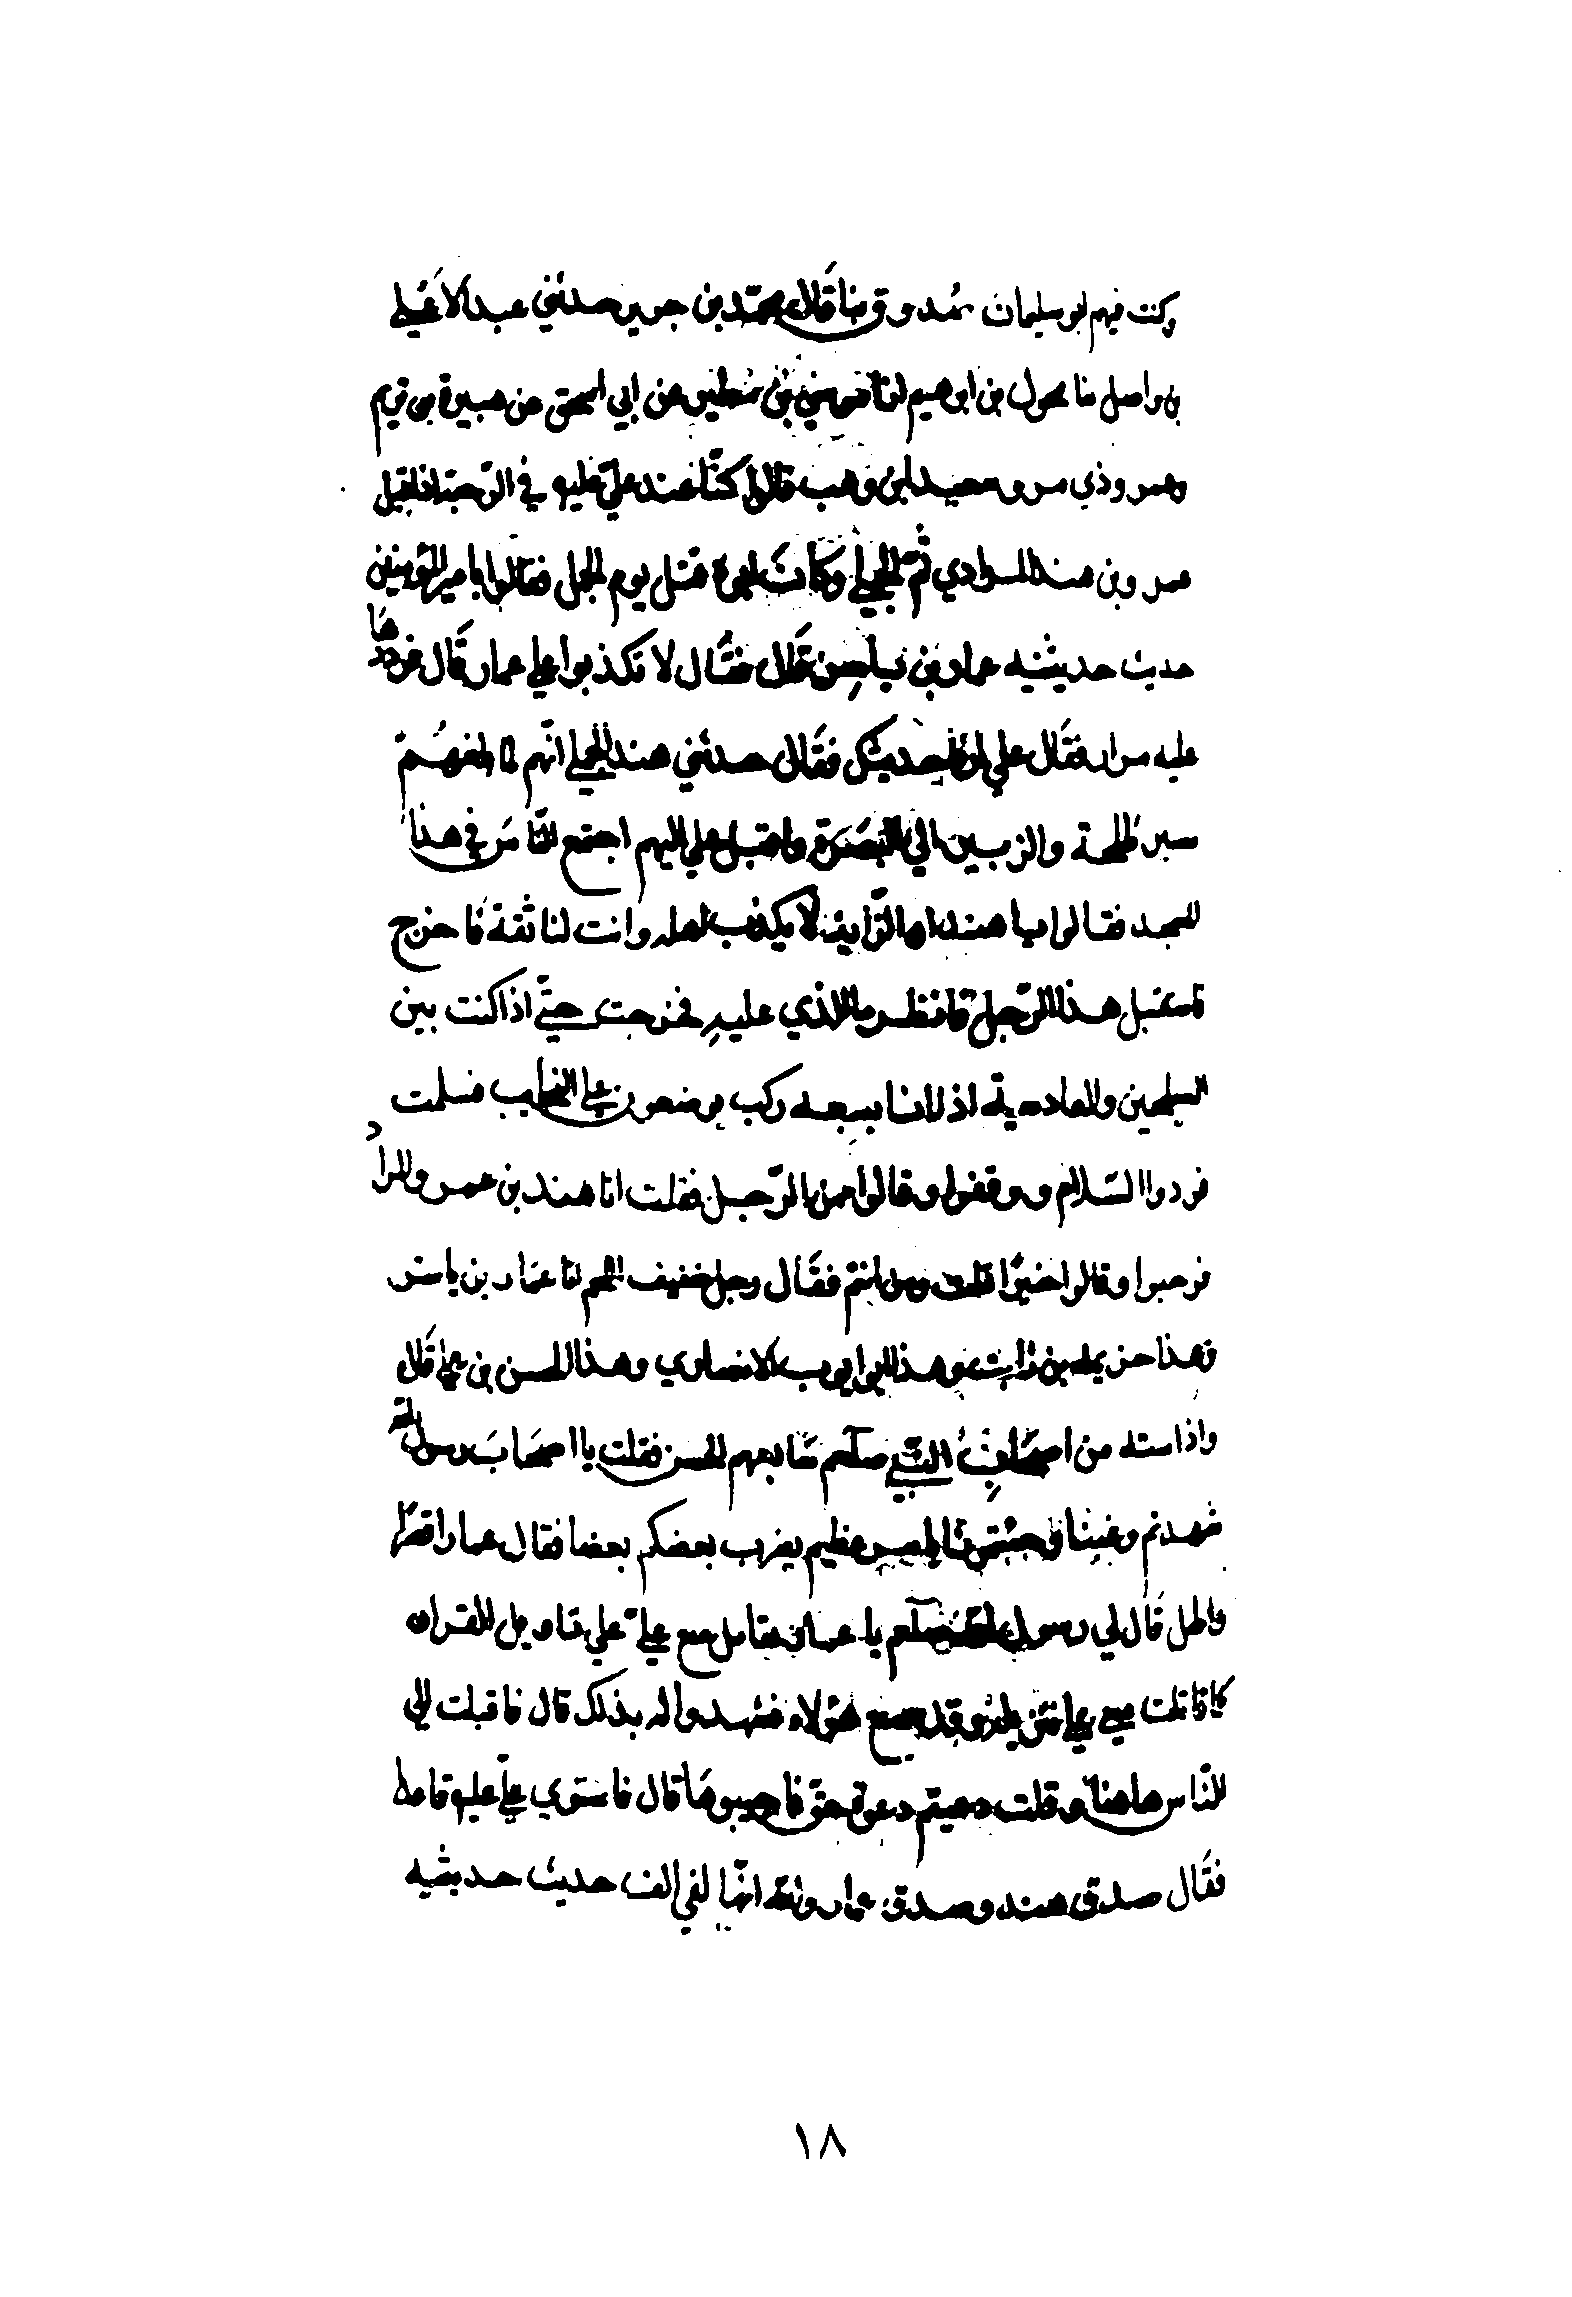 وكنت فيهم ابو سليمان محمد بن جرير حدثني عبد الاعلى
بن واصل نا مخول بن ابرهيم نا موسى بن مطير عن ابي اسحق عن هبيرة بن يريم
وعمرو ذي مر وسعيد بن وهب قالوا كنّا عند عليّ عليه في الرّحبة اذ اقبل
عمرو بن هند المرادي ثمّ الجملي وكانت قتل يوم الجمل فقالوا يا امير المؤمنين
حديث حديثيه عمار بن ياسر قال فقال لا تكذبوا علي عمار قال فردّدها
عليه مرارا فقال علي حديثك فقال حدثني هند الجملي انّهم لما بلغهم
سير طلحة والزبير الي البصرة واقبل علي اليهم اجتمع النّاس في هذا
المسجد فقالوا يا هند انّ الرّايد لا يكذب اهله وانت لنا ثقة فاخرج
فاستقبل هذا الرّجل فانظر ما الذي عليه فخرجت حتّي اذا كنت بين
السيلحين والقادسية اذ انا بسبعة ركب يوضعون علي النجايب فسلمت
فردوا السّلام ووقفوا وقالوا من الرّجل فقلت انا هند بن عمرو المراد
فرحبوا وقالوا خيرًا قلت ومن انتم فقال رجل خفيف اللحم انا عمار بن ياسر
وهذا خزيمة بن ثابت وهذا ابو ايوب الانصاري وهذا الحسن بن علي قال
واذا ستة من اصحاب النبيّ صلعم سابعهم الحسن فقلت يا اصحاب رسول الله
شهدتم وغبنا عظيم يضرب بعضكم بعضا فقال عمار اقصر
واطل قال لي رسول الله صلعم يا عمار تقاتل مع عليّ علي تاويل القران
كما قاتلت معي علي تنزيله وقد سمع هؤلاء فشهدوا له بذلك قال فاقبلت الي
النّاس هاهنا وقلت دعيتم دعوة حق فاجيبوها قال فاستوي عليّ عليه قاعدا
فقال صدق هند وصدق عمار والله انّها لفي الف حديث حديثيه
١٨